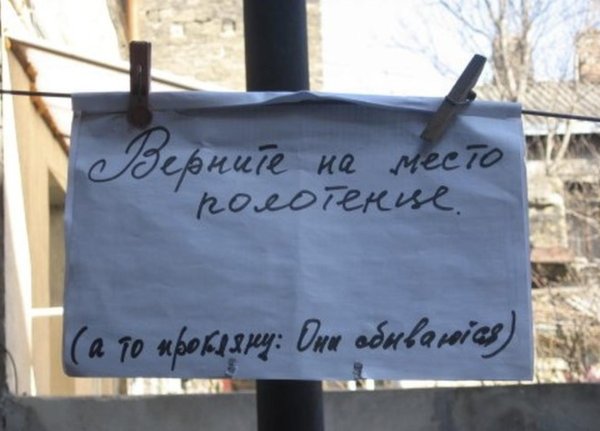 Верните на место
полотенце.
(а то прокляну: Они сбываются)